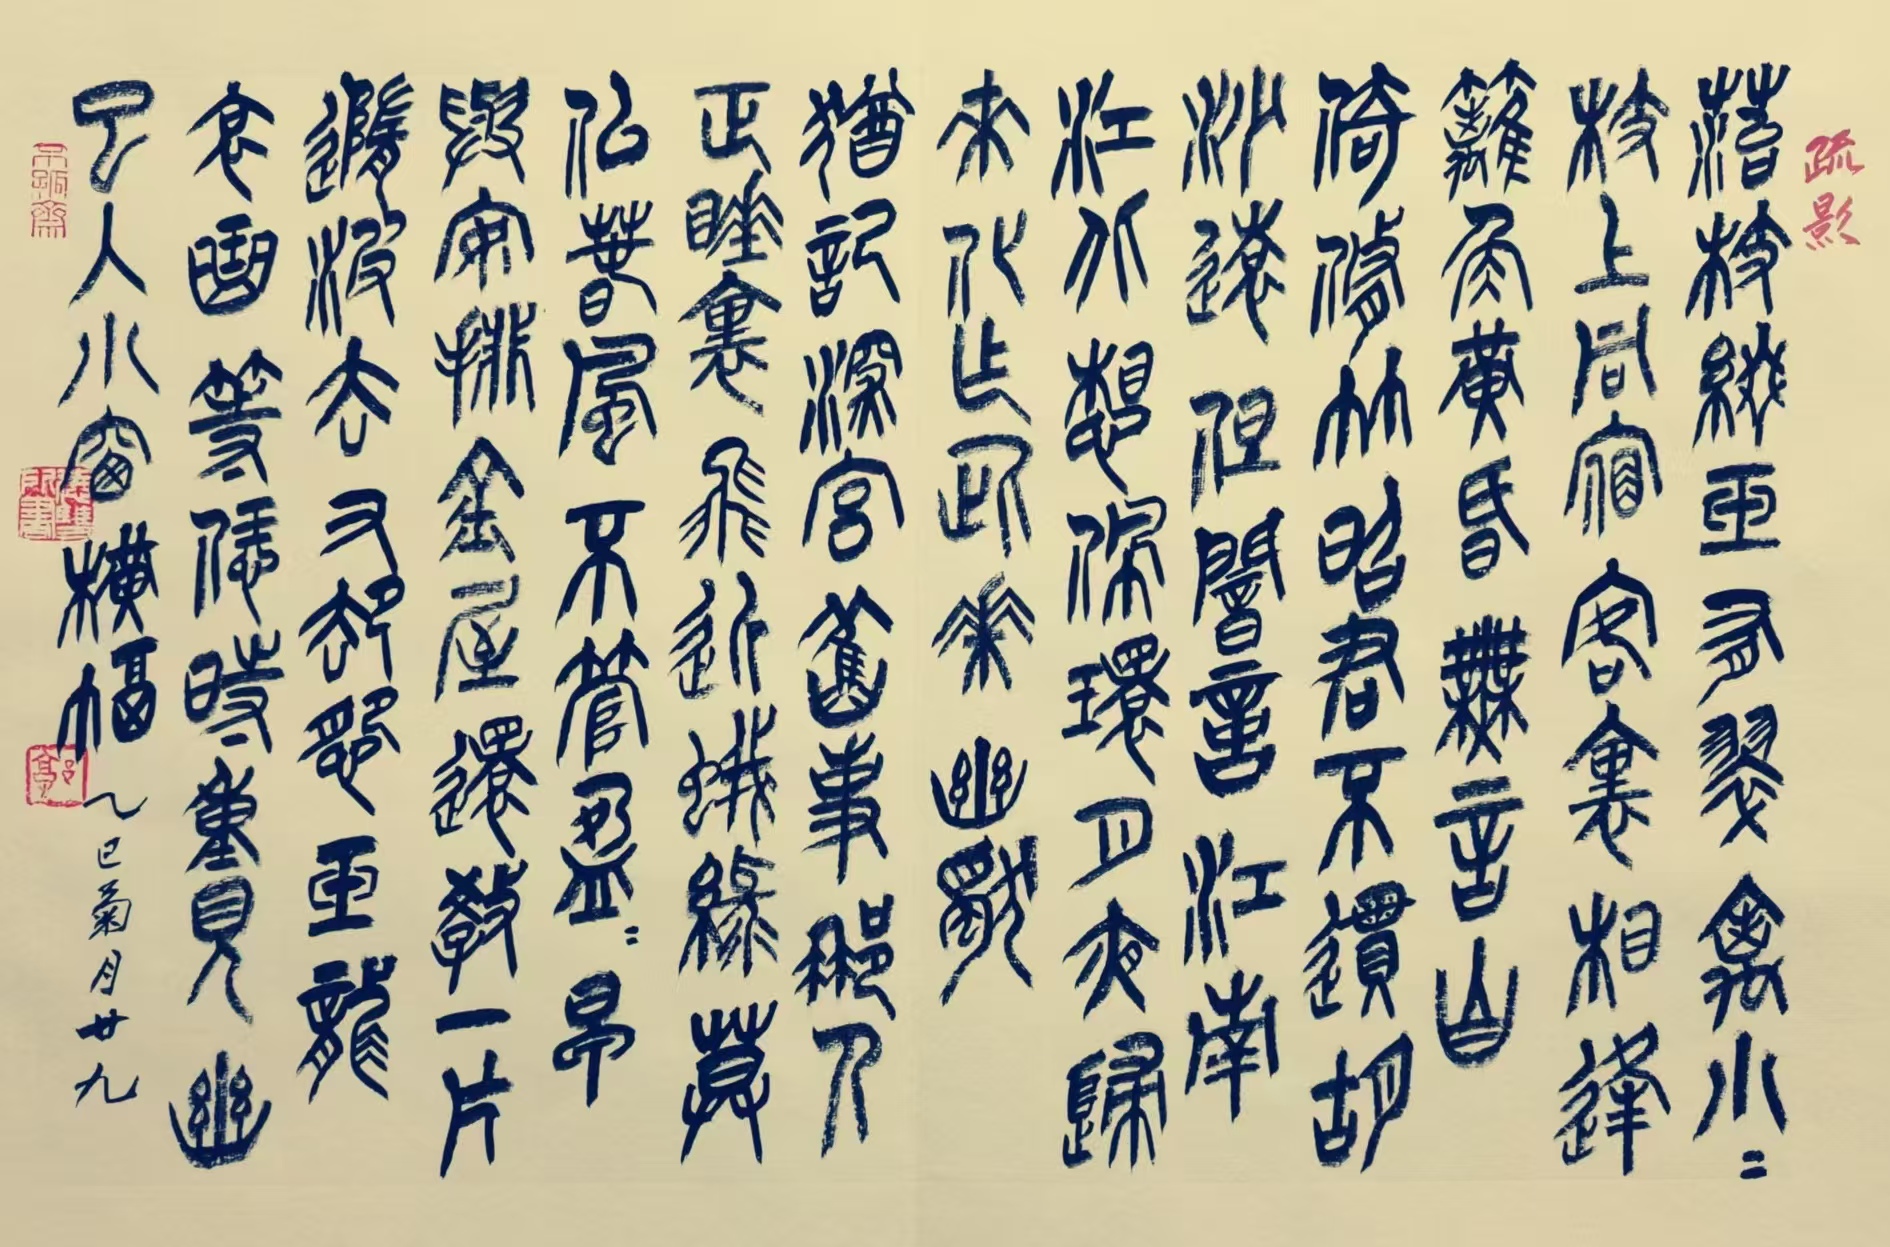 疏影
苔枝綴玉有翠禽小〻
枝上同宿客裏相逢
籬角黃昏無言自
倚修竹昭君不慣胡
沙遠但暗憶江南
江北想佩環月夜歸
來化作此花幽獨
猶記深宮舊事那人
正睡裏飛近蛾綠莫
似春風不管盈〻早
與安排金屋還教一片
隨波去又卻怨玉龍
哀曲等恁時重見幽
已入小窗橫幅
乙巳菊月廿九